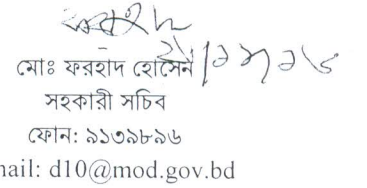 মোঃ ফরহাদ হোসেন
সহকারী সচিব
ফোন: ৯১৩৯৮৯৬
nail: d10@mod.gov.bd